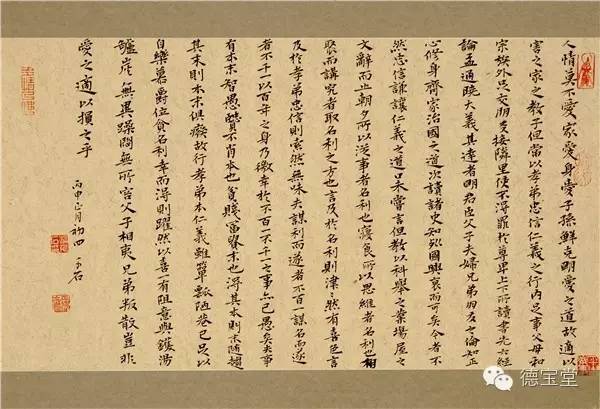 人情莫不愛家愛身愛子孫鮮克明愛之道故適以
害之家之教子但當以孝弟忠信仁義之行內足事父母和
宗族外足交朋友接隣里使不得罪於尊卑上下所讀書先六經
論孟通曉大義其達者明君臣父子夫婦兄弟朋友之倫知正
心修身齊家治國之道次讀諸史知國興衰而可矣今者不
然忠信謙讓仁義之道口未嘗言但教以科舉之業場屋之
文辭而止朝夕所以從事者名利也寢食所以思維者名利也相
聚而講究者取名利之方也言及於名利則津津然有喜色言
及於孝弟忠信則索然無味夫謀利而遂者不百一謀名而遂
者不千一以百年之身乃徼幸於不百一不千一之事亦已愚矣夫事
有本末智愚賢不肖本也貧賤富貴末也得其本則末隨趨
其末則本末俱廢故行孝弟本仁義雖簞瓢陋巷已足以
自樂慕爵位貪名利幸而得則躍然以喜一有阻意與鑊湯
爐炭人無異躁悶無所容父子相夷兄弟叛散豈非
愛之適以損之乎
丙申正月初四
德宝堂